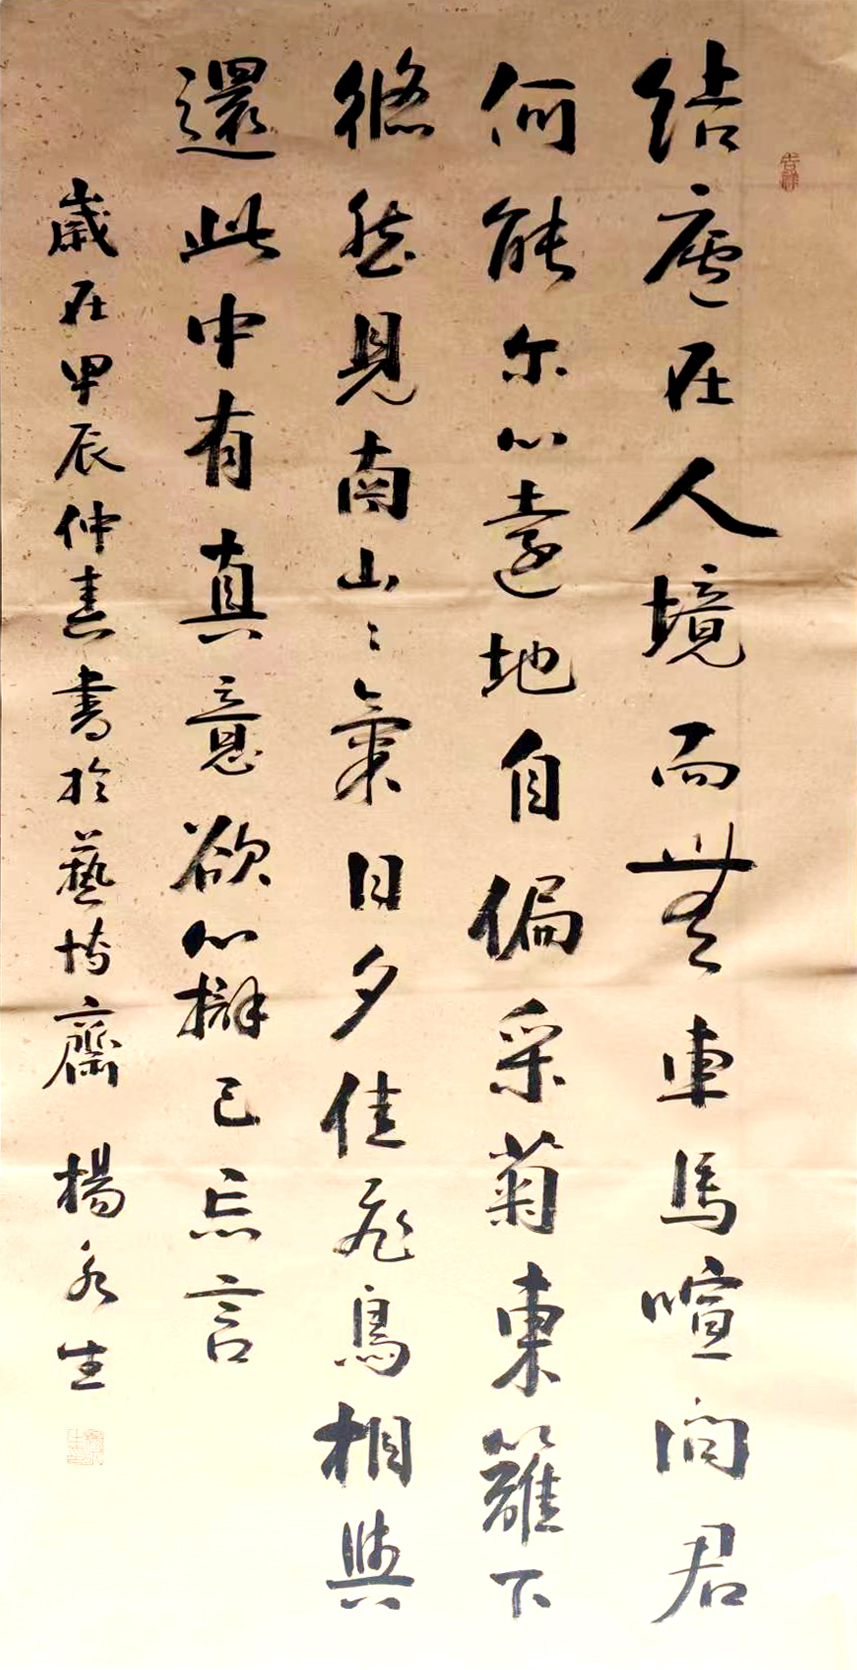 結廬在人境而無車馬喧問君
何能尔心遠地自偏采菊東籬下
悠然見南山〻氣日夕佳飛鳥相與
還此中有真意欲心辨已忘言
歲在甲辰仲春書於藝博齋 楊永生